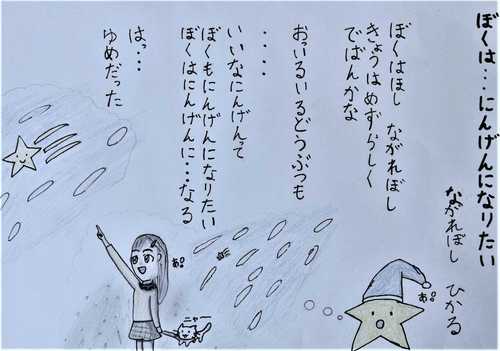 ぼくは・・・にんげんになりたい
ながれぼし ひかる
ぼくはほし ながれぼし
きょうはめずらしく
でばんかな
おっいるいるどうぶつも
・・・・
いいなにんげんって
ぼくもにんげんになりたい
ぼくはにんげんに・・・なる
はっ・・・
ゆめだった
あ。
ニャー
あ。